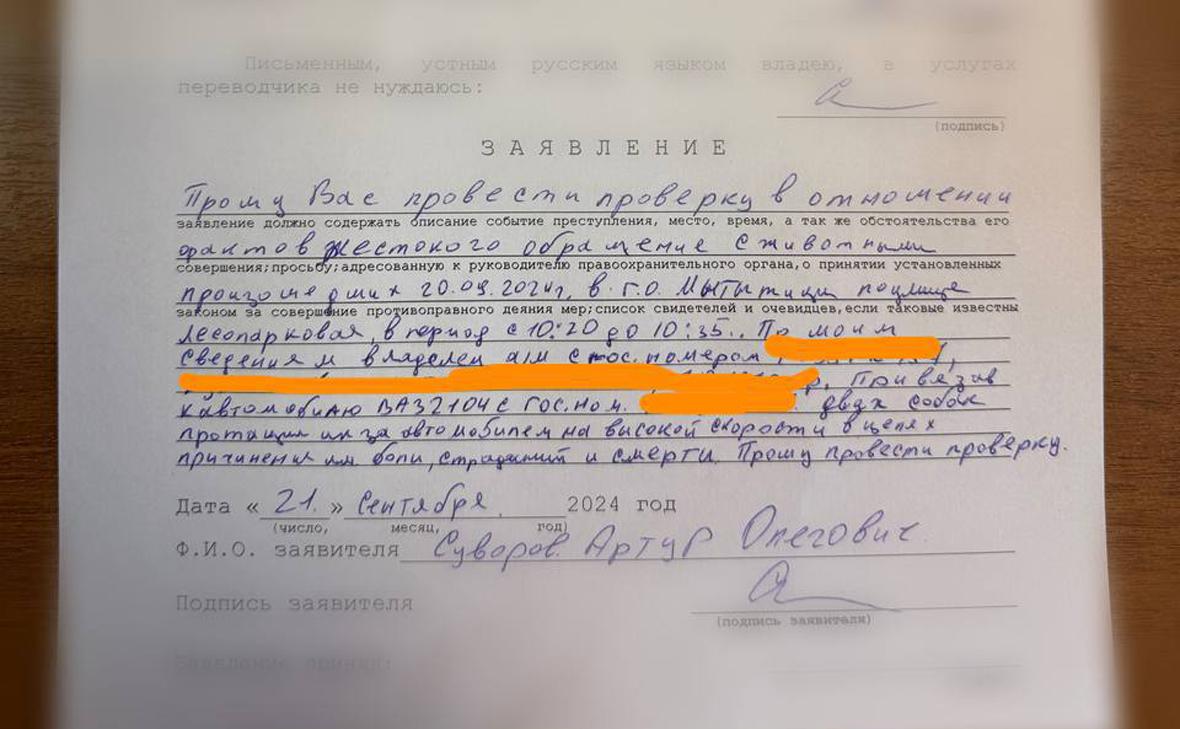 Письменным, устным русским языком владею, в услугах
переводчика не нуждаюсь:
(подпись)
ЗАЯВЛЕНИЕ
Прошу Вас провести проверку в отношении
заявление должно содержать описание событие преступления, место, время, а так же обстоятельства его
фактов жестокого обращение с животными
совершения;просьбу;адресованную к руководителю правоохранительного органа,о принятии установленных
произошедших 20.09.2024г. в г.о. Мытытищи по улице
законом за совершение противоправного деяния мер;список свидетелей и очевидцев,если таковые известны
Лесопарковая, в период с 10:20 до 10:35.. По моим
сведениям владелец а/м с гос. номером
Привязав
к автомобилю ВАЗ2104 с гос. ном. двух собак
протащил их за автомобилем на высокой скорости в целях
причинения им боли, страданий и смерти. Прошу провести проверку.
Дата « 21. » Сентября 2024 год
(число, месяц, год)
Ф.И.О. заявителя Суворов Артур Олегович
Подпись заявителя
(подпись заявителя)